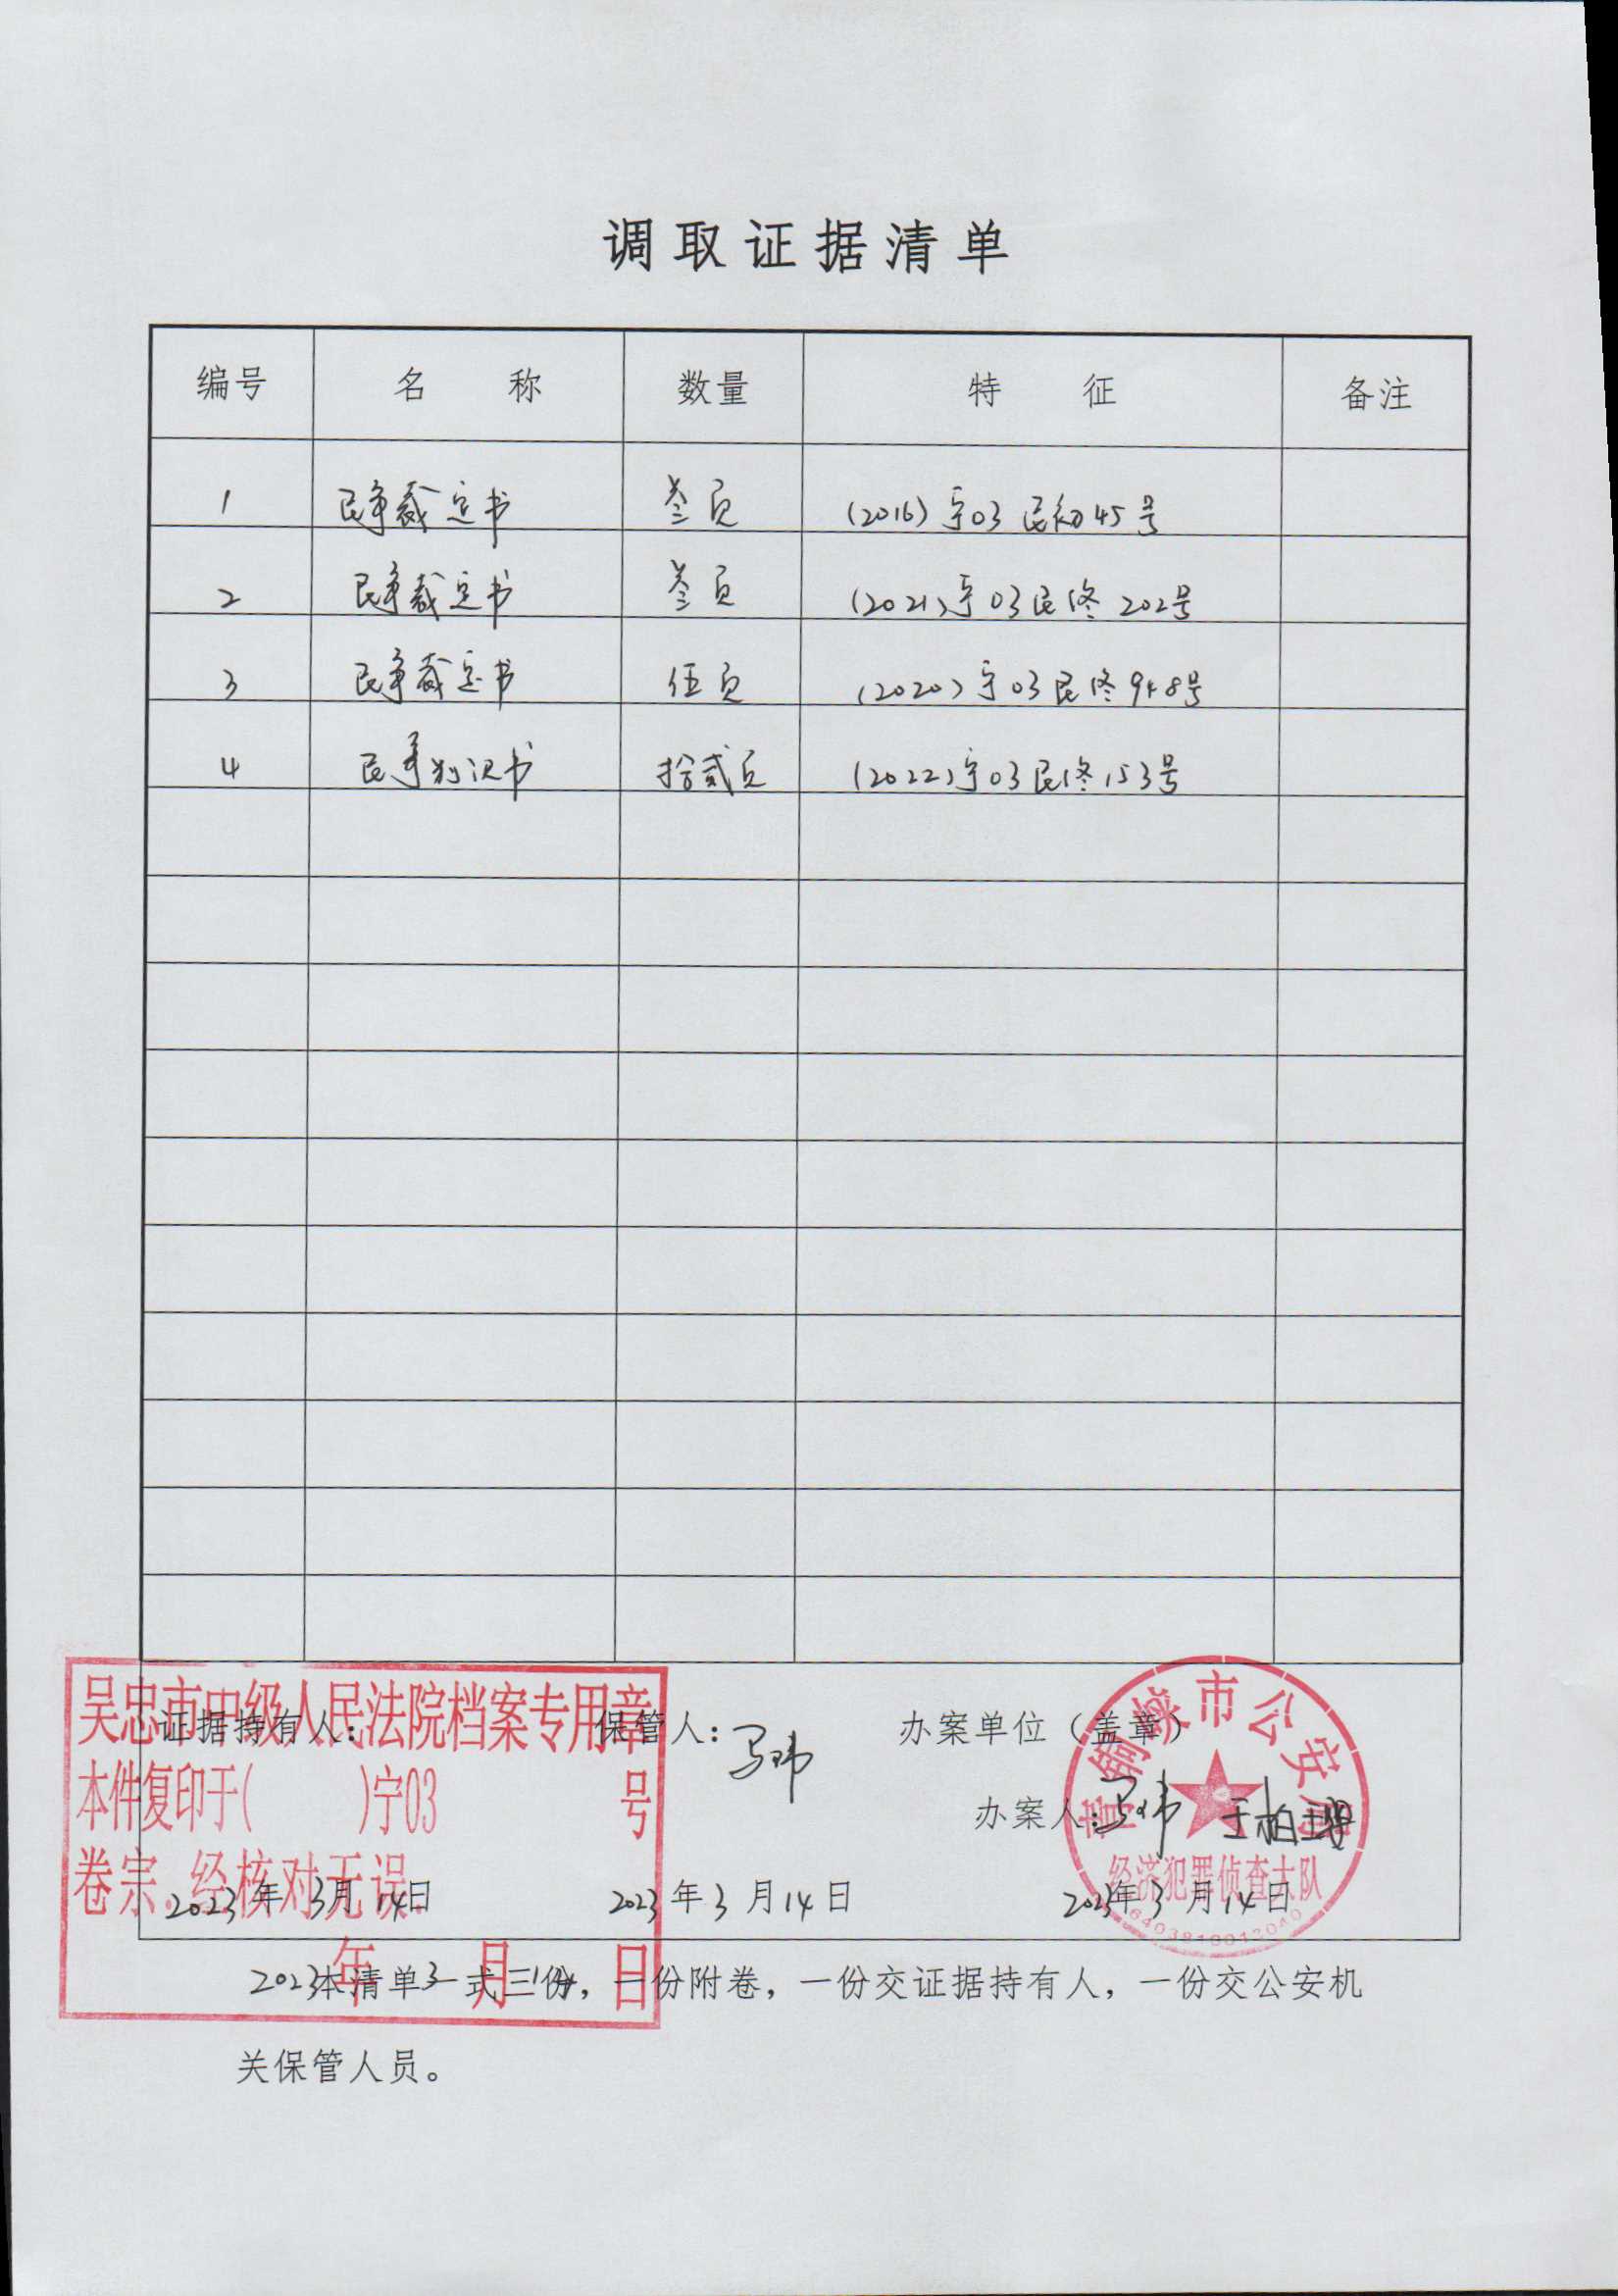 调取证据清单
编号 名称 数量 特征 备注
1 民事裁定书 叁页 (2016)宁03民初45号
2 民事裁定书 叁页 (2021)宁03民终202号
3 民事裁定书 伍页 (2020)宁03民终948号
4 民事判决书 拾贰页 (2022)宁03民终153号
吴忠市中级人民法院档案专用章
证据持有人: 保管人:马玮 办案单位(盖章)
本件复印于( )宁03 号
办案人:马玮
青铜峡市公安局
经济犯罪侦查大队
卷宗,经核对无误
2023年3月14日 2023年3月14日 2023年3月14日
2023年3月14日
本清单一式三份,一份附卷,一份交证据持有人,一份交公安机
关保管人员。